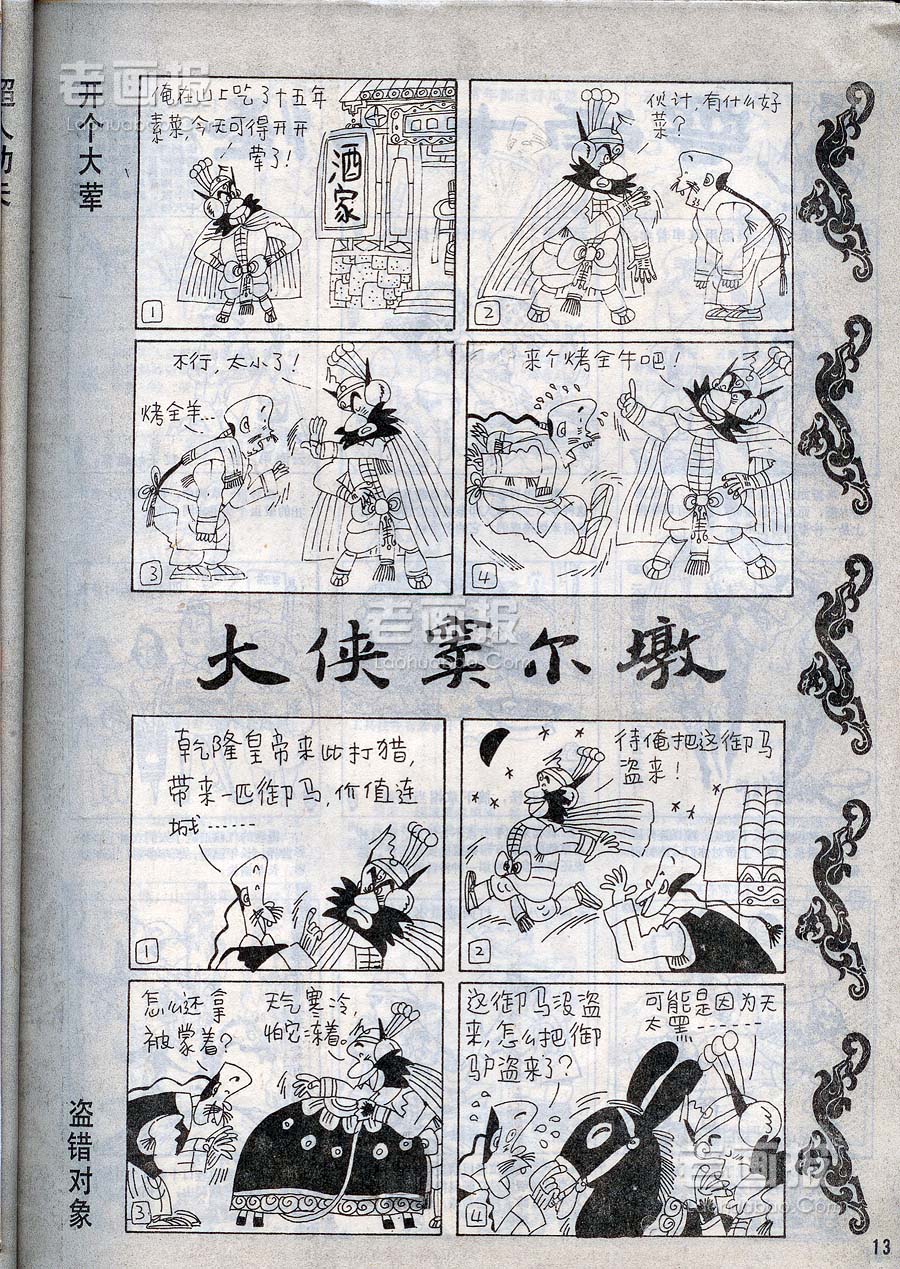 开个大荤
俺在山上吃了十五年
素菜,今天可得开开
荤了!
酒家
1
伙计,有什么好
菜?
2
不行,太小了!
烤全羊…
3
来个烤全牛吧!
4
大侠窦尔墩
乾隆皇帝来此打猎,
带来一匹御马,价值连
城……
1
待俺把这御马
盗来!
2
怎么还拿
被蒙着?
天气寒冷,
怕它冻着。
3
这御马没盗
来,怎么把御
驴盗来了?
可能是因为天
太黑………
4
盗错对象
13
老画报
Laohuabao.Com
老画报
Laohuabao.Com
老画报
Laohuabao.Com